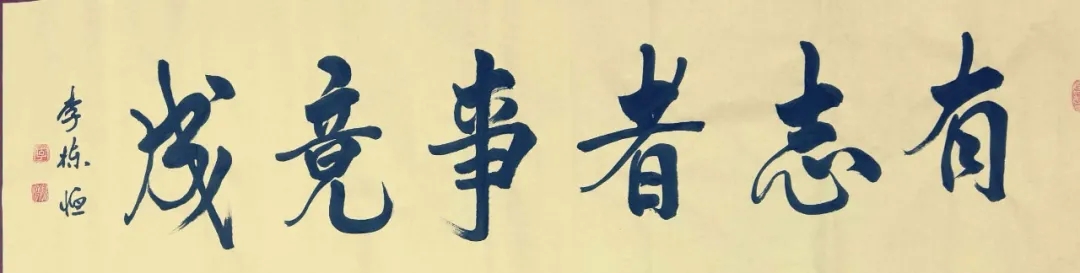 有志者事竟成
李栋恒